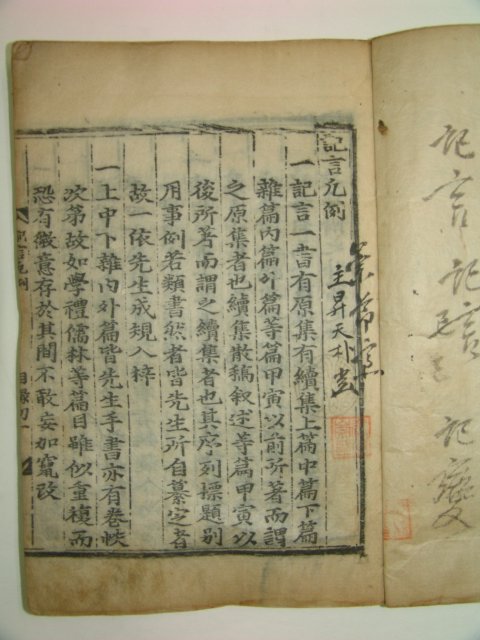 記言
記變
記言凡例
主昇天朴
一記言一書有原集有續集上篇中篇下篇
雜篇內篇外篇等篇甲寅以前所著而謂
之原集者也續集散稿叙述等篇甲寅以
後所著而謂之續集者也其序列標題別
用事例若類書然者皆先生所自纂定者
故一依先生成規入梓
一上中下雜內外篇皆先生手書亦有卷帙
次第故如學禮儒林等篇目雖似重複而
恐有微意存於其間不敢妄加竄改
記言凡例 目錄